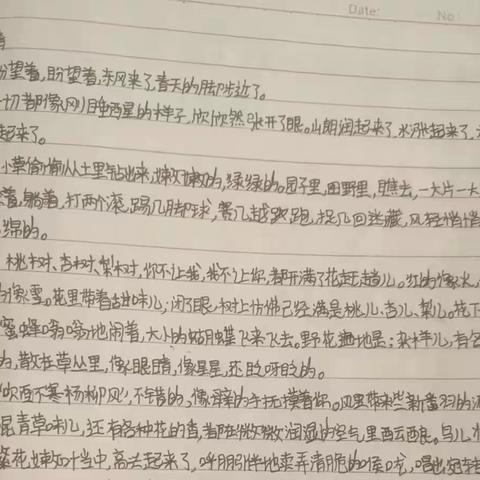 Date: No
盼望着,盼望着,东风来了,春天的脚步近了。
一切都像刚睡醒的样子,欣欣然张开了眼。山朗润起来了,水涨起来了,
起来了。
小草偷偷从土里钻出来,嫩嫩的,绿绿的。园子里,田野里,瞧去,一大片一大
着,躺着,打两个滚,踢几脚球,赛几趟跑,捉几回迷藏。风轻悄悄
绵的。
桃树、杏树、梨树,你不让我,我不让你,都开满了花赶趟儿。红的像火,
的像雪。花里带着甜味儿;闭了眼,树上仿佛已经满是桃儿、杏儿、梨儿。花下
蜜蜂嗡嗡地闹着,大小的蝴蝶飞来飞去。野花遍地是:杂样儿,有名
的,散在草丛里,像眼睛,像星星,还眨呀眨的。
吹面不寒杨柳风",不错的,像母亲的手抚摸着你。风里带来些新翻的泥
混青草味儿,还有各种花的香,都在微微润湿的空气里酝酿。鸟儿
繁花嫩叶当中,高兴起来了,呼朋引伴地卖弄清脆的喉咙,唱出宛转